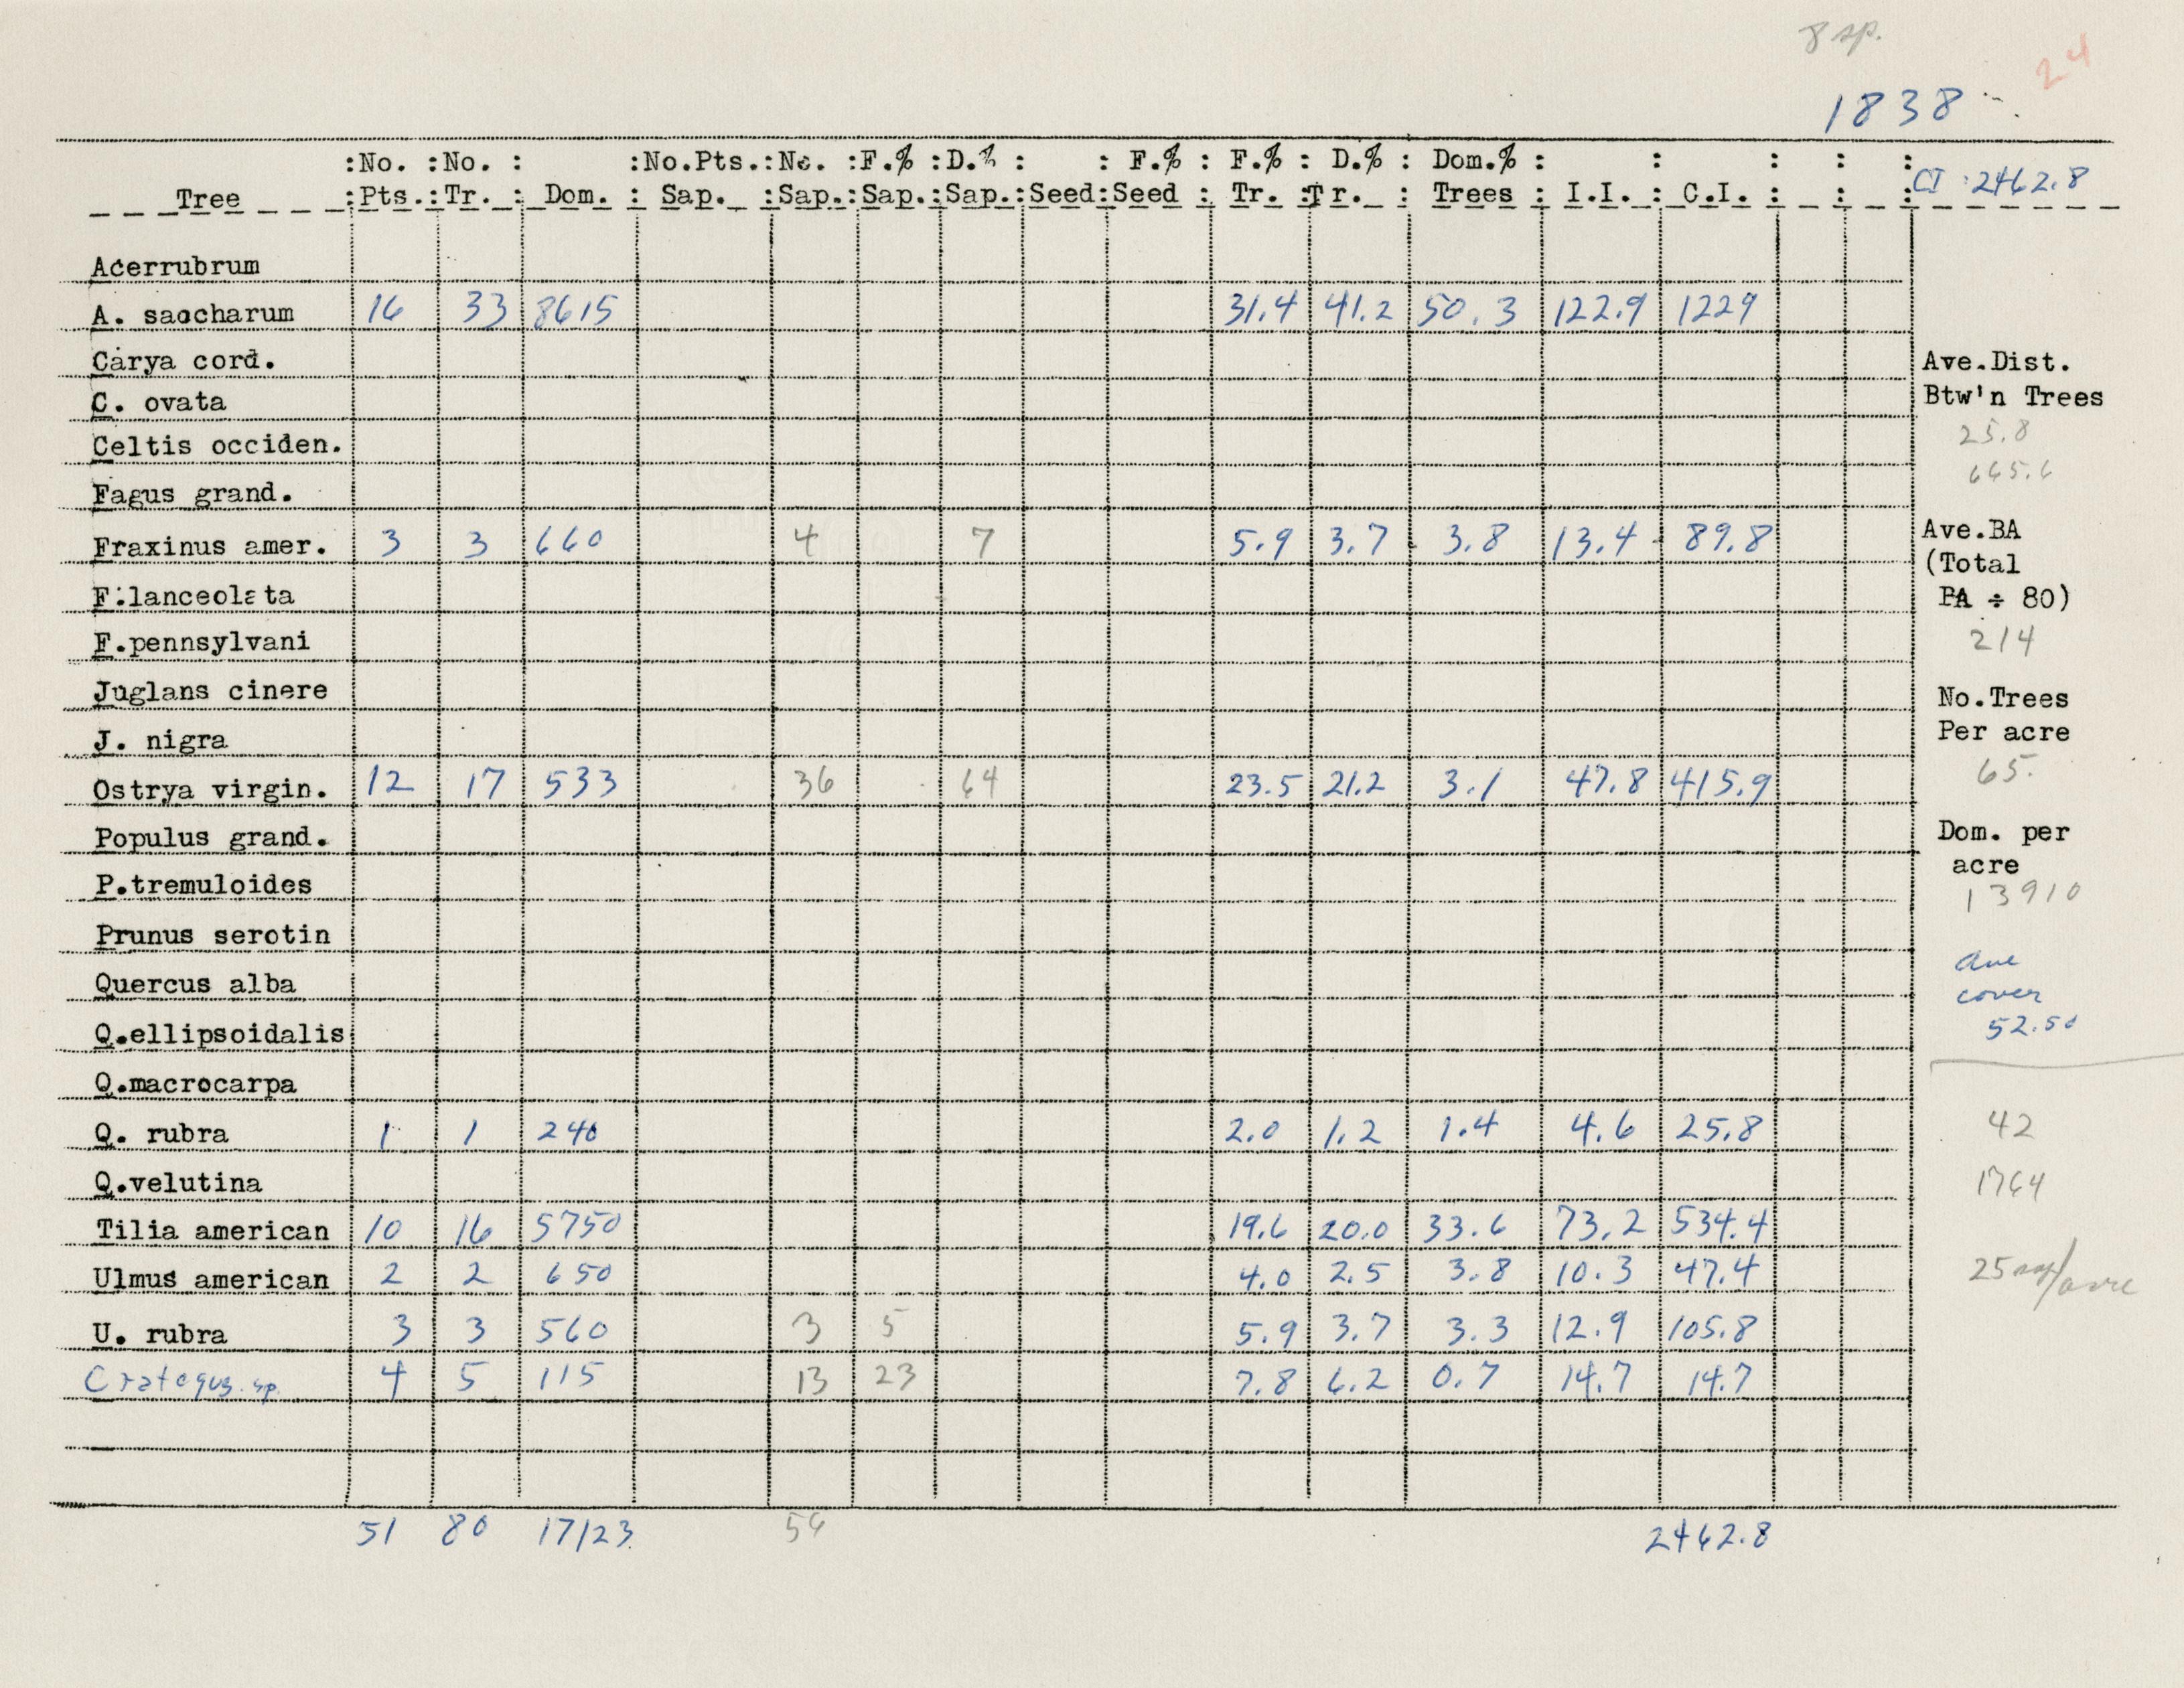 8 sp.
24
1838
:No. :No. : :No.Pts.:No. :F.% :D.% : : F.% : F.% : D.% : Dom.% : : : : :
Tree :Pts.:Tr. : Dom. : Sap. :Sap.:Sap.:Sap.:Seed:Seed : Tr. :Tr. : Trees : I.I. : C.I. : : : CI :2462.8
Acerrubrum
A. saccharum 16 33 8615 31.4 41.2 50.3 122.9 1229
Carya cord.
Ave.Dist.
C. ovata
Btw'n Trees
25.8
Celtis occiden.
665.6
Fagus grand.
Fraxinus amer. 3 3 660 4 7 5.9 3.7 3.8 13.4 89.8
Ave.BA
(Total
F.lanceolata
BA ÷ 80)
F.pennsylvani
214
Juglans cinere
No.Trees
J. nigra
Per acre
65.
Ostrya virgin. 12 17 533 36 64 23.5 21.2 3.1 47.8 415.9
Populus grand.
Dom. per
acre
P.tremuloides
13910
Prunus serotin
Ave
Quercus alba
cover
52.50
Q.ellipsoidalis
Q.macrocarpa
Q. rubra 1 1 240 2.0 1.2 1.4 4.6 25.8
42
Q.velutina
1764
Tilia american 10 16 5750 19.6 20.0 33.6 73.2 534.4
Ulmus american 2 2 650 4.0 2.5 3.8 10.3 47.4
25 sap/acre
U. rubra 3 3 560 3 5 5.9 3.7 3.3 12.9 105.8
Crategus sp. 4 5 115 13 23 7.8 6.2 0.7 14.7 14.7
51 80 17123 56 2462.8